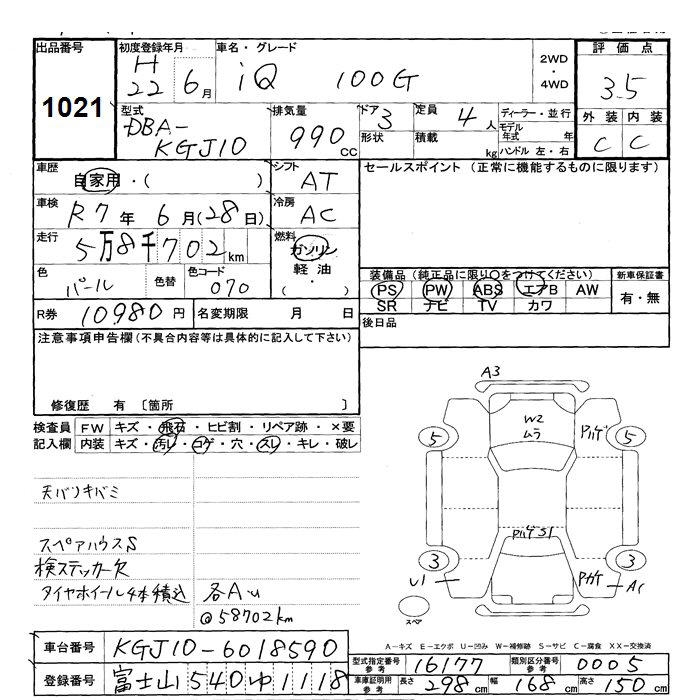 出品番号 初度登録年月 車名・グレード 2WD・4WD 評価点
1021 H22 6月 iQ 100G 3.5
型式 排気量 ドア 3 定員 4人 ディーラー・並行 外装 内装
DBA-KGJ10 990cc 形状 積載 kg モデル年式 年 C C
ハンドル 左・右
車歴 シフト セールスポイント(正常に機能するものに限ります)
自家用・( ) AT
車検 R7年 6月(28日) 冷房 AC
走行 5万8千702km 燃料 ガソリン 軽油 ( ・ )
色 パール 色替 色コード 070
装備品(純正品に限り○をつけてください) 新車保証書
PS PW ABS エアB AW 有・無
SR ナビ TV カワ
R券 10980円 名変期限 月 日
後日品
注意事項申告欄(不具合内容等は具体的に記入して下さい)
修復歴 有 〔箇所 〕
検査員 FW キズ・飛石・ヒビ割・リペア跡・×要
記入欄 内装 キズ・汚れ・コゲ・穴・スレ・キレ・破レ
天バリキバミ
スペアハウスS
検ステッカー欠
タイヤホイール4本積込 各AU
@58702km
A3
W2
ムラ
Pハゲ
5 5
PハゲS1
3 3
U1 Pハゲ AC
スペア
A-キズ E-エクボ U-凹み W-補修跡 S-サビ C-腐食 XX-交換済
車台番号 KGJ10-6018590
登録番号 富士山 540 ゆ 1118
型式指定番号 参考 16177 類別区分番号 参考 0005
車庫証明用 参考 長さ 298cm 幅 168cm 高さ 150cm